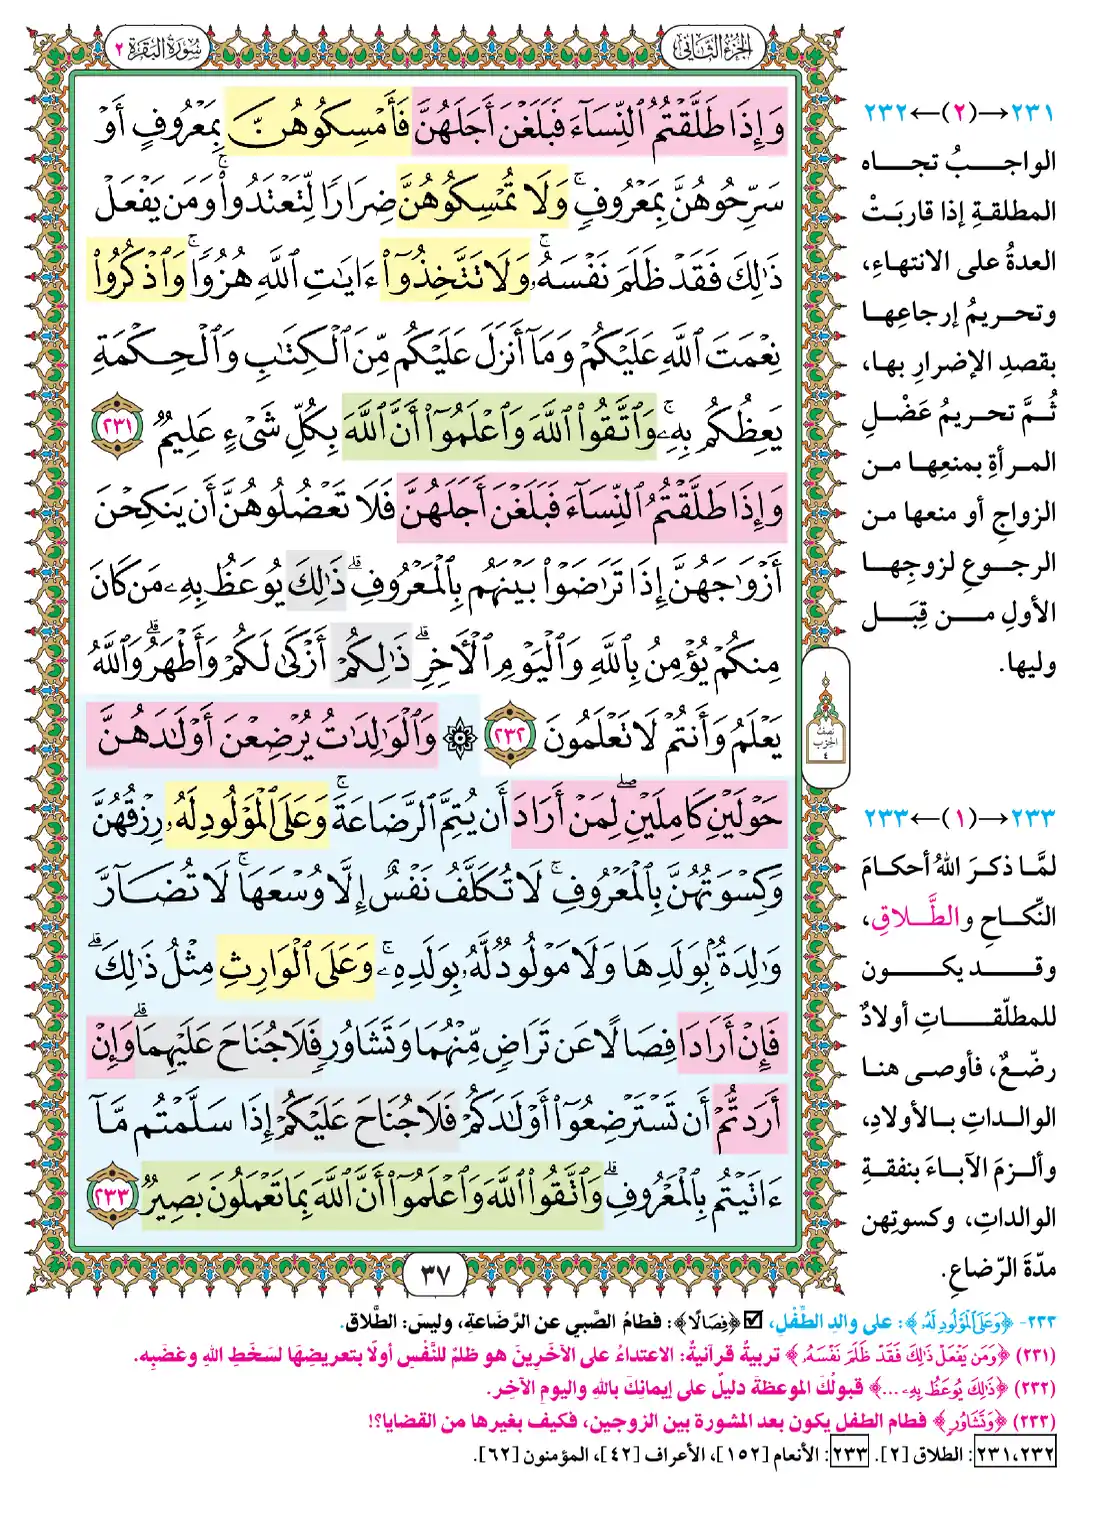 الجزء الثاني
سورة البقرة ٢
وَإِذَا طَلَّقْتُمُ ٱلنِّسَآءَ فَبَلَغْنَ أَجَلَهُنَّ فَأَمْسِكُوهُنَّ بِمَعْرُوفٍ أَوْ
سَرِّحُوهُنَّ بِمَعْرُوفٍۚ وَلَا تُمْسِكُوهُنَّ ضِرَارًا لِّتَعْتَدُوا۟ۚ وَمَن يَفْعَلْ
ذَٰلِكَ فَقَدْ ظَلَمَ نَفْسَهُۥۚ وَلَا تَتَّخِذُوٓا۟ ءَايَـٰتِ ٱللَّهِ هُزُوًاۚ وَٱذْكُرُوا۟
نِعْمَتَ ٱللَّهِ عَلَيْكُمْ وَمَآ أَنزَلَ عَلَيْكُم مِّنَ ٱلْكِتَـٰبِ وَٱلْحِكْمَةِ
يَعِظُكُم بِهِۦۚ وَٱتَّقُوا۟ ٱللَّهَ وَٱعْلَمُوٓا۟ أَنَّ ٱللَّهَ بِكُلِّ شَىْءٍ عَلِيمٌ ٢٣١
وَإِذَا طَلَّقْتُمُ ٱلنِّسَآءَ فَبَلَغْنَ أَجَلَهُنَّ فَلَا تَعْضُلُوهُنَّ أَن يَنكِحْنَ
أَزْوَٰجَهُنَّ إِذَا تَرَٰضَوْا۟ بَيْنَهُم بِٱلْمَعْرُوفِۗ ذَٰلِكَ يُوعَظُ بِهِۦ مَن كَانَ
مِنكُمْ يُؤْمِنُ بِٱللَّهِ وَٱلْيَوْمِ ٱلْـَٔاخِرِۗ ذَٰلِكُمْ أَزْكَىٰ لَكُمْ وَأَطْهَرُۗ وَٱللَّهُ
يَعْلَمُ وَأَنتُمْ لَا تَعْلَمُونَ ٢٣٢ ۞ وَٱلْوَٰلِدَٰتُ يُرْضِعْنَ أَوْلَـٰدَهُنَّ
حَوْلَيْنِ كَامِلَيْنِۖ لِمَنْ أَرَادَ أَن يُتِمَّ ٱلرَّضَاعَةَۚ وَعَلَى ٱلْمَوْلُودِ لَهُۥ رِزْقُهُنَّ
وَكِسْوَتُهُنَّ بِٱلْمَعْرُوفِۚ لَا تُكَلَّفُ نَفْسٌ إِلَّا وُسْعَهَاۚ لَا تُضَآرَّ
وَٰلِدَةٌۢ بِوَلَدِهَا وَلَا مَوْلُودٌ لَّهُۥ بِوَلَدِهِۦۚ وَعَلَى ٱلْوَارِثِ مِثْلُ ذَٰلِكَۗ
فَإِنْ أَرَادَا فِصَالًا عَن تَرَاضٍ مِّنْهُمَا وَتَشَاوُرٍ فَلَا جُنَاحَ عَلَيْهِمَاۗ وَإِنْ
أَرَدتُّمْ أَن تَسْتَرْضِعُوٓا۟ أَوْلَـٰدَكُمْ فَلَا جُنَاحَ عَلَيْكُمْ إِذَا سَلَّمْتُم مَّآ
ءَاتَيْتُم بِٱلْمَعْرُوفِۗ وَٱتَّقُوا۟ ٱللَّهَ وَٱعْلَمُوٓا۟ أَنَّ ٱللَّهَ بِمَا تَعْمَلُونَ بَصِيرٌ ٢٣٣
٣٧
٢٣١→(٢)←٢٣٢
الواجبُ تجاه
المطلقةِ إذا قاربَتْ
العدةُ على الانتهاءِ،
وتحريمُ إرجاعِها
بقصدِ الإضرارِ بها،
ثُمَّ تحريمُ عَضْلِ
المرأةِ بمنعِها من
الزواجِ أو منعها من
الرجوعِ لزوجِها
الأولِ من قِبَل
وليها.
نصف
الحزب
٤
٢٣٣→(١)←٢٣٣
لمَّا ذكرَ اللهُ أحكامَ
النِّكاحِ والطَّلاقِ،
وقد يكون
للمطلّقاتِ أولادٌ
رضّعٌ، فأوصى هنا
الوالداتِ بالأولادِ،
وألزمَ الآباءَ بنفقةِ
الوالداتِ، وكسوتِهن
مدّةَ الرّضاعِ.
٢٣٣- ﴿وَعَلَى ٱلْمَوْلُودِ لَهُۥ﴾: على والدِ الطِّفْلِ، ☑ ﴿فِصَالًا﴾: فطامُ الصَّبي عن الرَّضَاعةِ، وليسَ: الطَّلاق.
(٢٣١) ﴿وَمَن يَفْعَلْ ذَٰلِكَ فَقَدْ ظَلَمَ نَفْسَهُۥ﴾ تربيةٌ قرآنيةٌ: الاعتداءُ على الآخَرِينَ هو ظلمٌ للنَّفْسِ أولًا بتعريضِهَا لسَخَطِ اللهِ وغضَبِه.
(٢٣٢) ﴿ذَٰلِكَ يُوعَظُ بِهِۦ ...﴾ قبولُكَ الموعظةَ دليلٌ على إيمانِكَ باللهِ واليومِ الآخِرِ.
(٢٣٣) ﴿وَتَشَاوُرٍ﴾ فطام الطفل يكون بعد المشورة بين الزوجين، فكيف بغيرها من القضايا؟!
٢٣١،٢٣٢: الطلاق [٢]. ٢٣٣: الأنعام [١٥٢]، الأعراف [٤٢]، المؤمنون [٦٢].